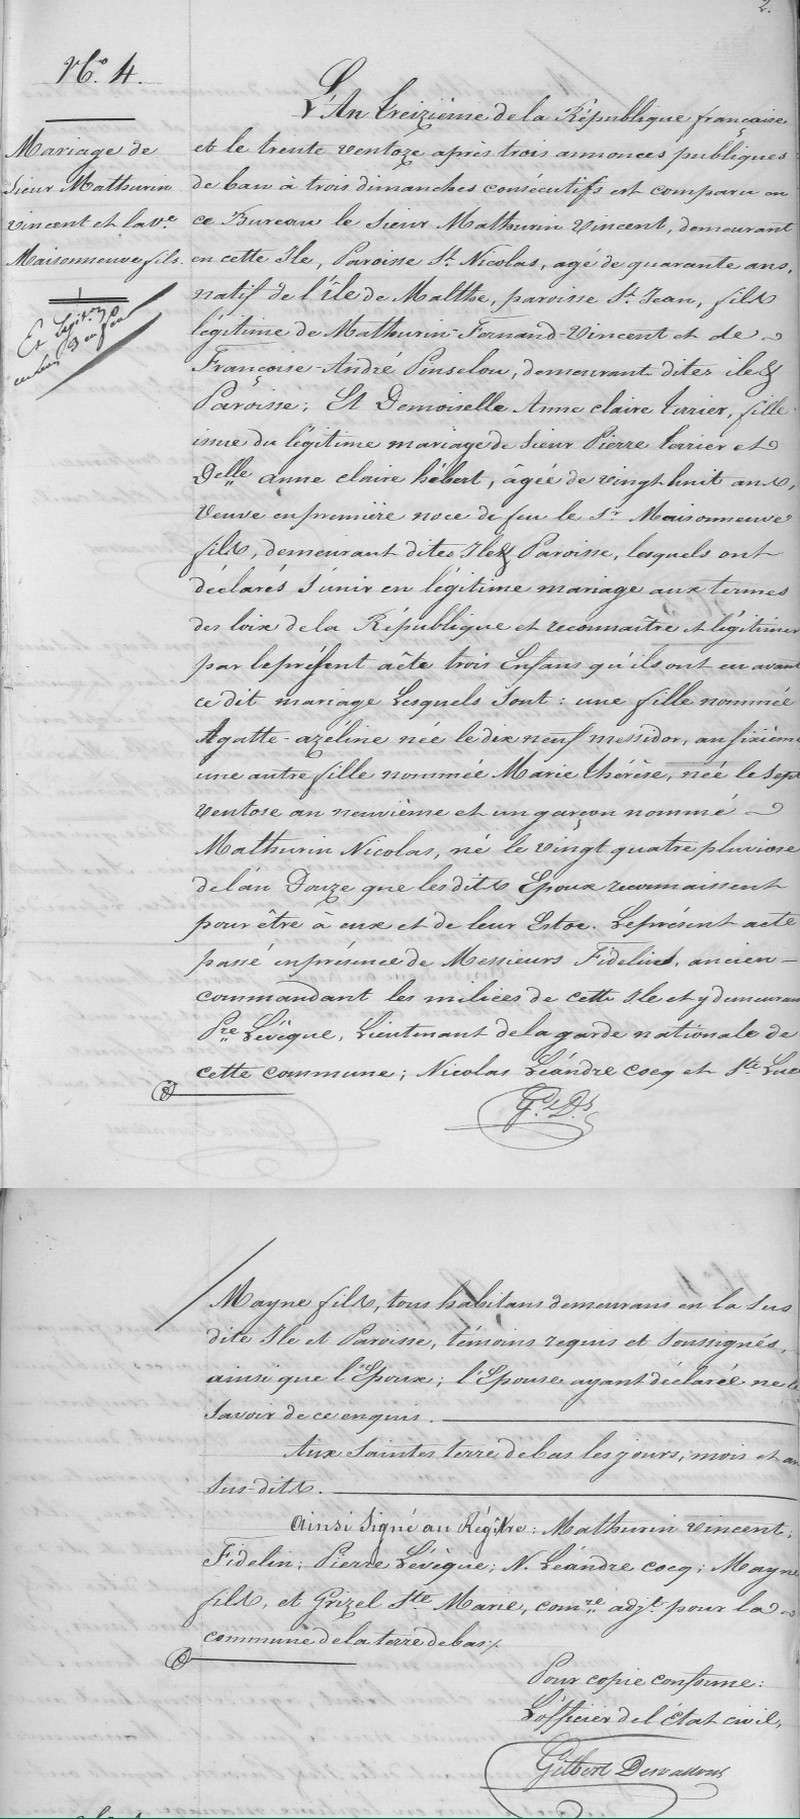 2.
No. 4.
Mariage de
Sieur Mathurin
Vincent et la Ve.
Maisonneuve fils.
Et légit.on
enfans
L'An treizième de la République française
et le trente ventoze après trois annonces publiques
de ban à trois dimanches consécutifs est comparu en
ce Bureau le Sieur Mathurin Vincent, demeurant
en cette Ile, Paroisse St. Nicolas, agé de quarante ans,
natif de l'île de Malthe, paroisse St. Jean, fils
légitime de Mathurin-Fernand-Vincent et de
Françoise-André Pinselou, demeurant dites ile &
Paroisse; Et Demoiselle Anne Claire Terrier, fille
issue du légitime mariage de Sieur Pierre Terrier et
Delle anne Claire hébert, âgée de vingt huit ans,
Veuve en première noce de feu le Sr. Maisonneuve
fils, demeurant dites Ile & Paroisse, lesquels ont
déclarés s'unir en légitime mariage aux termes
des loix de la République et reconnaître et légitimer
par le présent acte trois Enfans qu'ils ont eu avant
ce dit mariage Lesquels sont: une fille nommée
Agatte-azéline née le dix neuf messidor, an sixième
une autre fille nommée Marie thérèse, née le sept
Ventose an neuvième et un garçon nommé
Mathurin Nicolas, né le vingt quatre pluviose
de l'an Douze que les dits Epoux reconnaissent
pour être à eux et de leur Estoc. Le présent acte
passé en présence de Messieurs Fidelin, ancien
commandant les milices de cette Ile et y demeurant
Pre Lévêque, Lieutenant de la garde nationale de
cette commune; Nicolas Léandre Cocq et Ste. Luce
G. D.
Mayne fils, tous habitans demeurans en la Sus
dite Ile et Paroisse, témoins requis et Soussignés,
ainsi que l'Epoux; l'Epouse ayant déclarée ne le
Savoir de ce enquis.
Aux Saintes terre de bas les jours, mois et an
Sus-dits.
Ainsi Signé au Régître: Mathurin Vincent;
Fidelin; Pierre Lévêque; N. Léandre Cocq; Mayne
fils, et Grizel Ste Marie, comre. adjt. pour la
commune de la terre de bas./.
Pour copie conforme:
L'officier de l'État civil,
Gilbert Desvallons